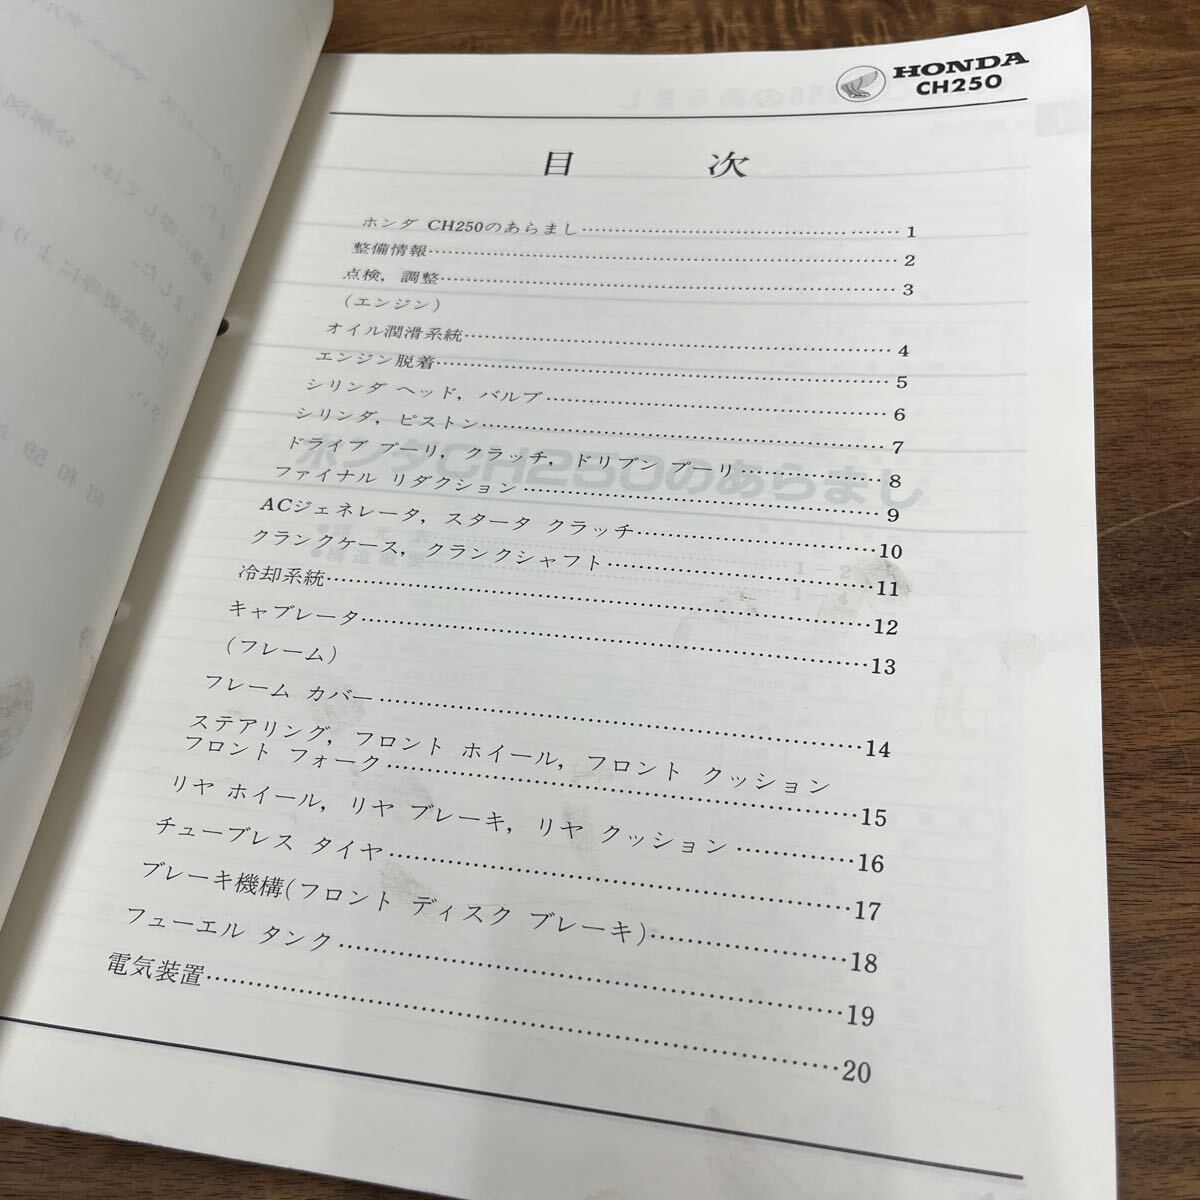 HONDA
CH250
目 次
ホンダ CH250のあらまし……………………………………1
整備情報……………………………………2
点検，調整……………………………………3
（エンジン）
オイル潤滑系統……………………………………4
エンジン脱着……………………………………5
シリンダ ヘッド，バルブ……………………………………6
シリンダ，ピストン……………………………………7
ドライブ プーリ，クラッチ，ドリブン プーリ……………8
ファイナル リダクション……………………………………9
ACジェネレータ，スタータ クラッチ……………………10
クランクケース，クランクシャフト……………………11
冷却系統……………………………………12
キャブレータ……………………………………13
（フレーム）
フレーム カバー……………………………………14
ステアリング，フロント ホイール，フロント クッション
フロント フォーク……………………………………15
リヤ ホイール，リヤ ブレーキ，リヤ クッション…………16
チューブレス タイヤ……………………………………17
ブレーキ機構(フロント ディスク ブレーキ)………………18
フューエル タンク……………………………………19
電気装置……………………………………20